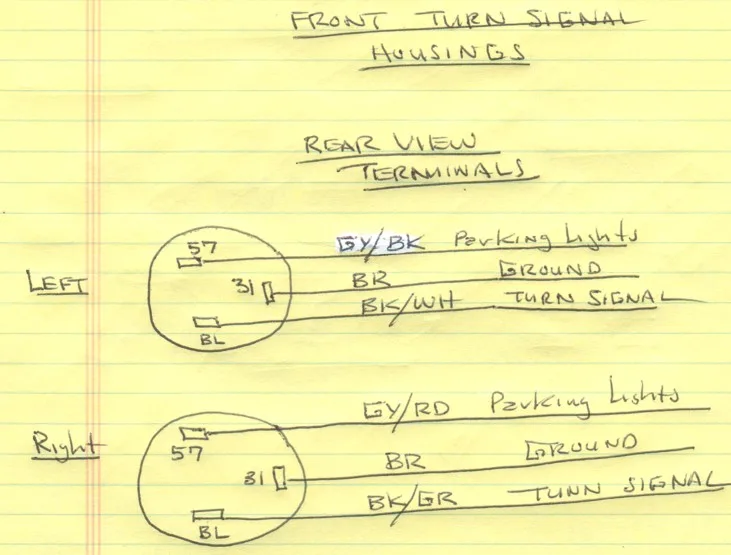 FRONT TURN SIGNAL
HOUSINGS
REAR VIEW
TERMINALS
LEFT
57 GY/BK Parking Lights
31 BR GROUND
BK/WH TURN SIGNAL
BL
Right
GY/RD Parking Lights
57
31 BR GROUND
BK/GR TUNN SIGNAL
BL